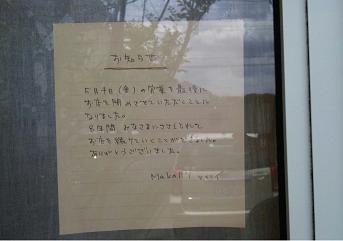 お知らせ
5月4日(金)の営業を最後に
お店を閉めさせていただくことに
なりました。
8年間 みなさまにささえられて
お店を続けていくことができました。
ありがとうございました。
Makani